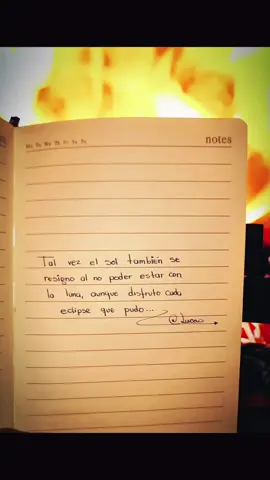 notes
Tal vez el sol también se
resigno al no poder estar con
la luna, aunque disfruto cada
eclipse que pudo...